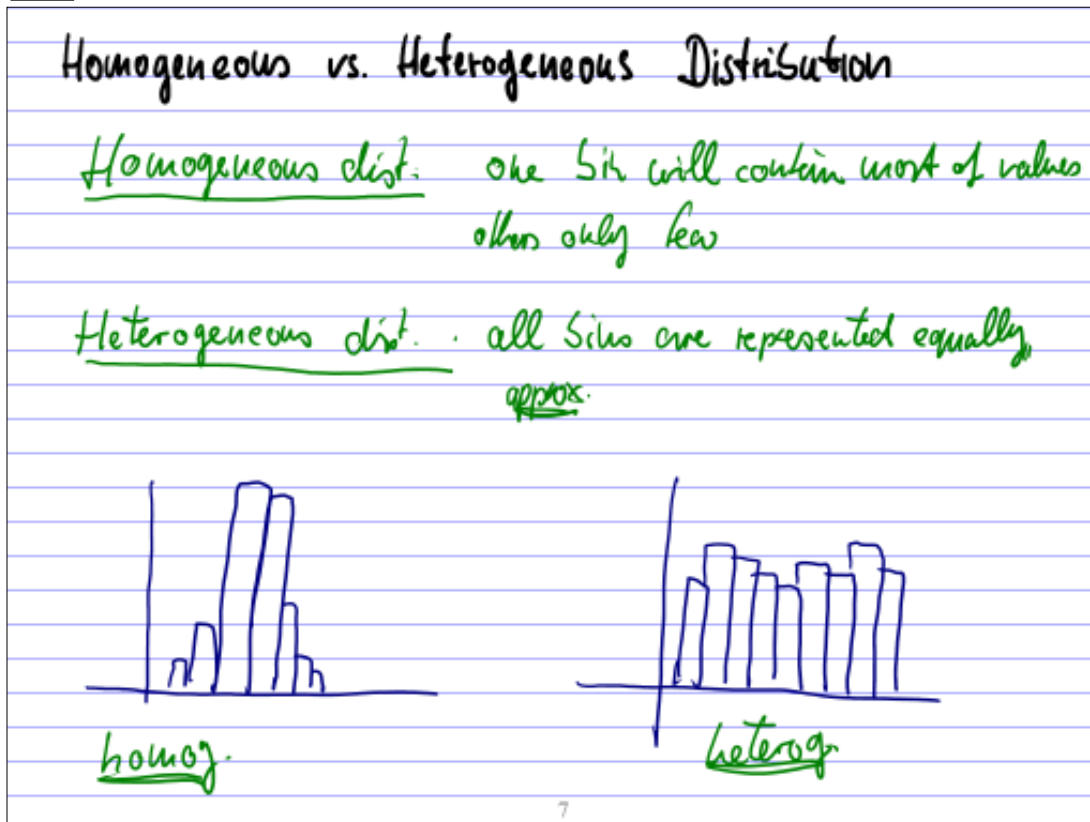 Homogeneous vs. Heterogeneous Distribution
Homogeneous dist. one bin will contain most of values
others only few
Heterogeneous dist. . all bins are represented equally,
approx.
homog. heterog.
7